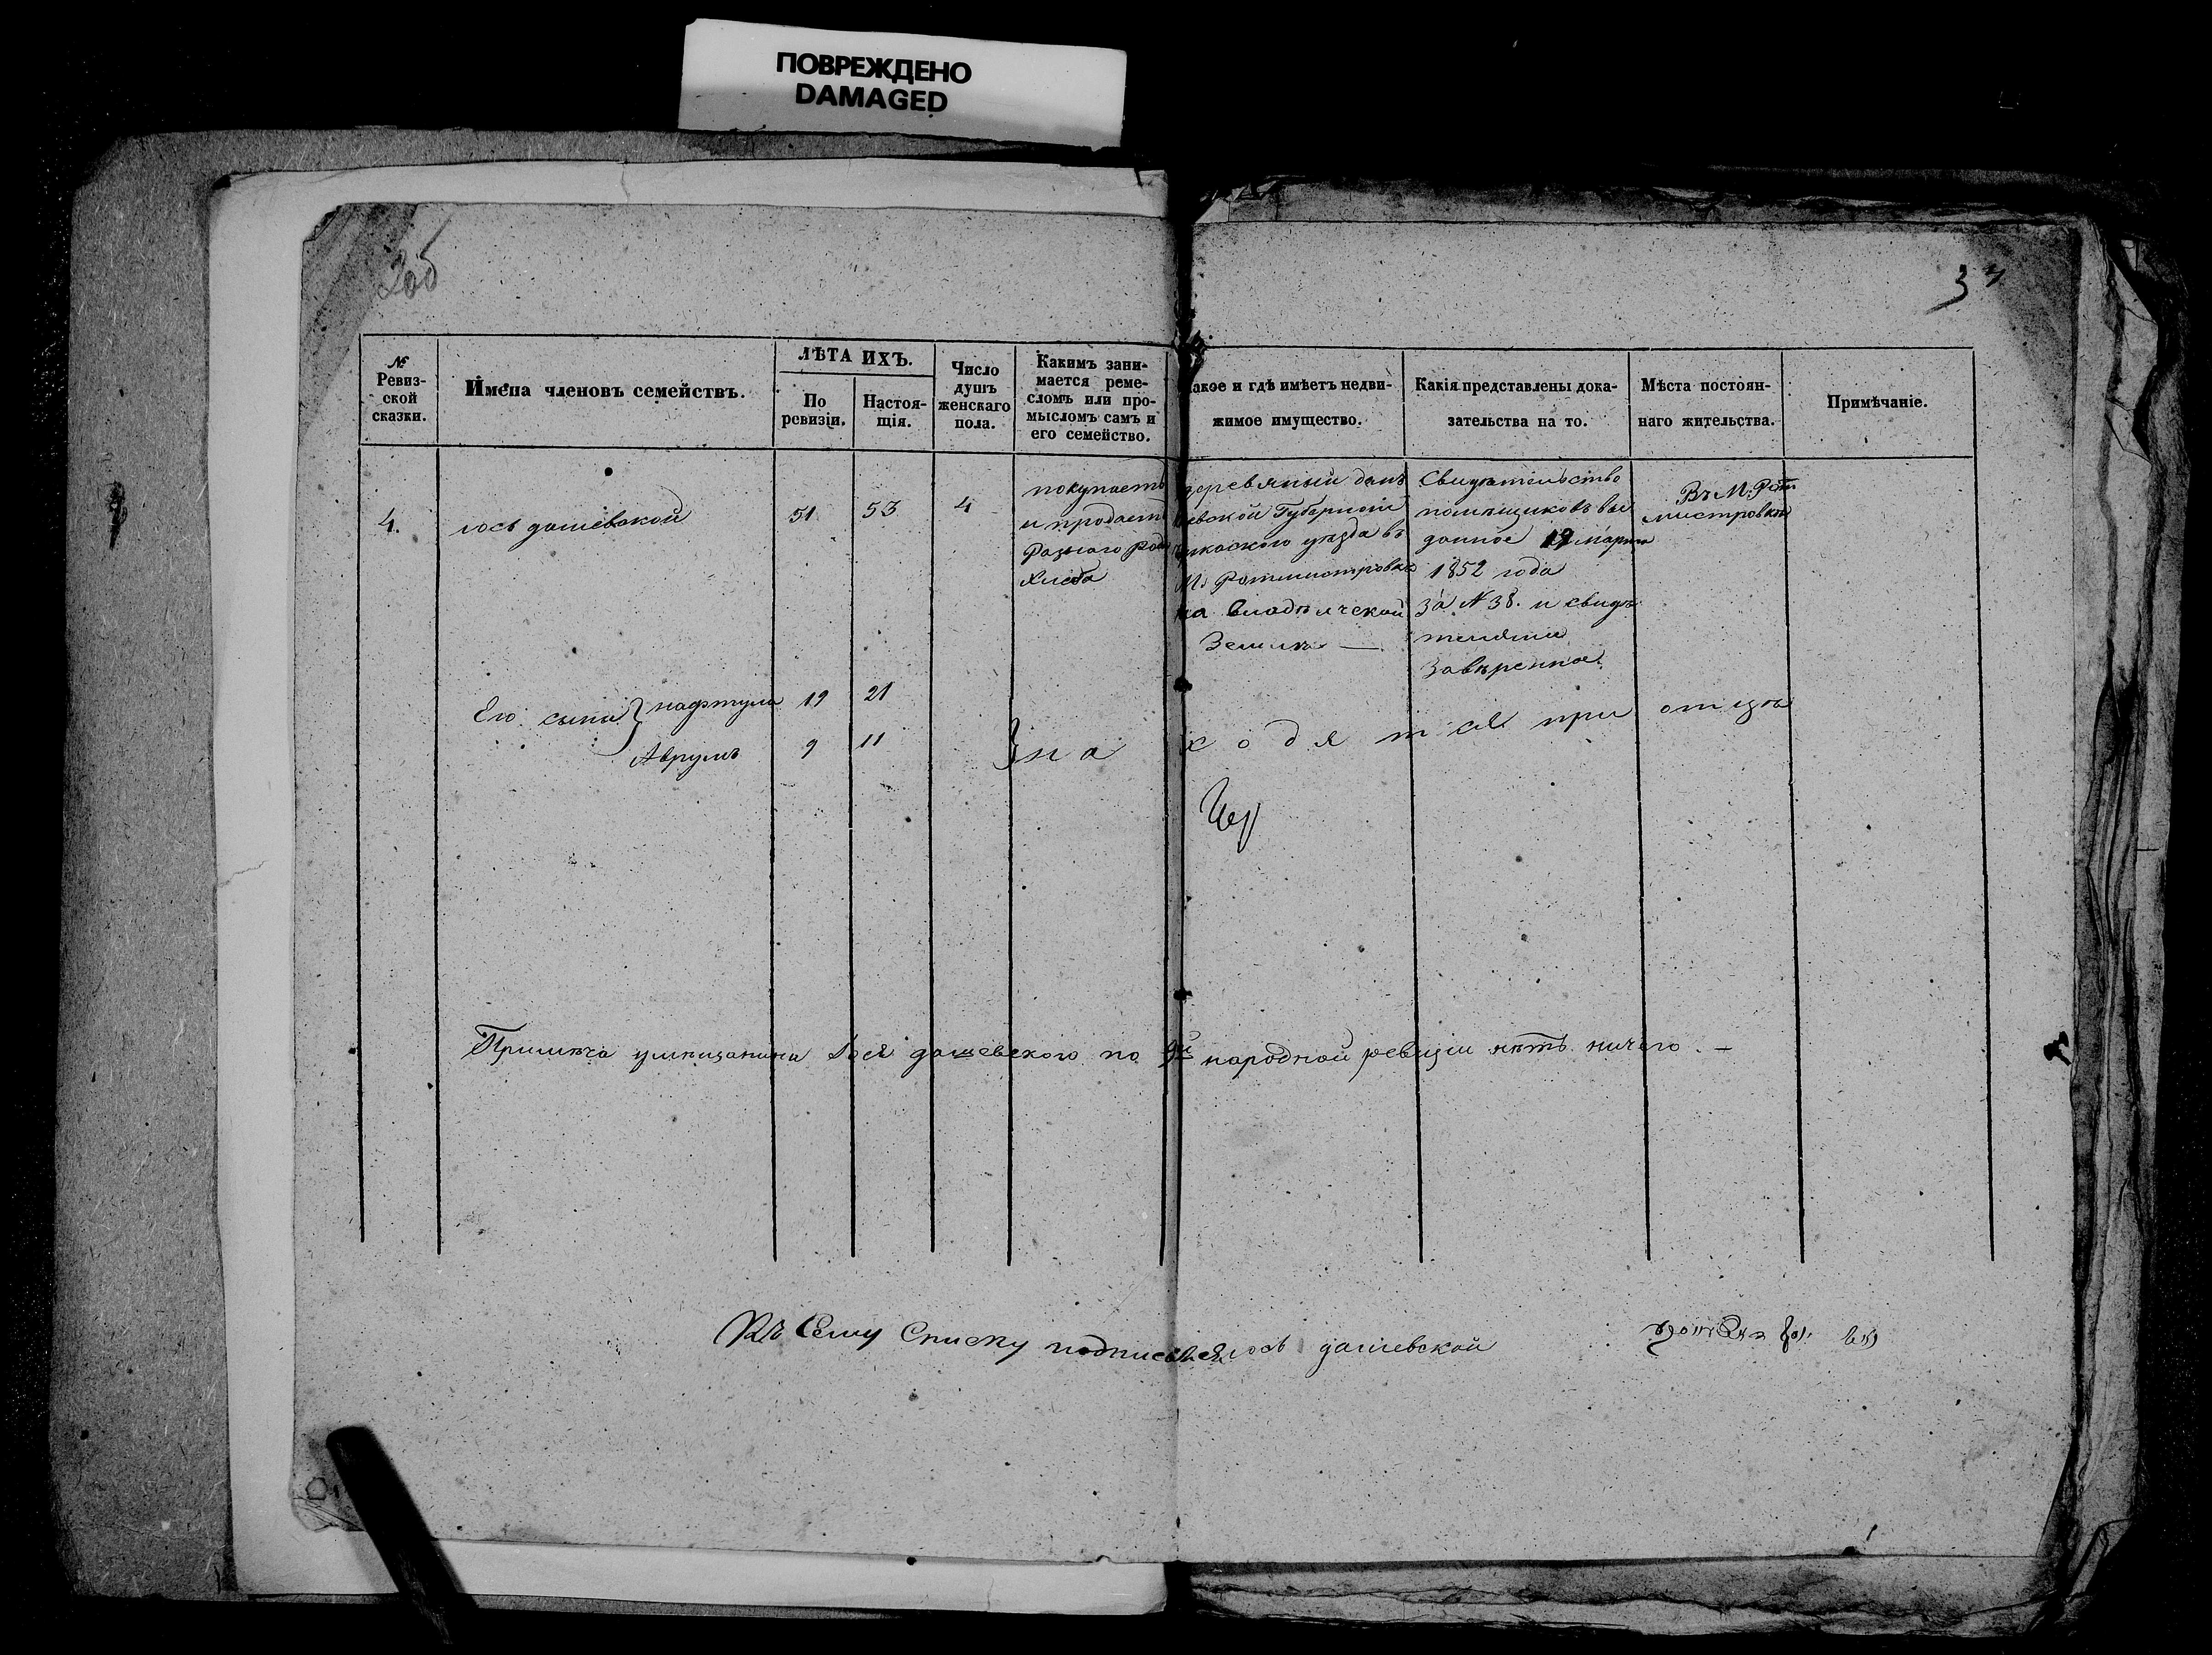 ПОВРЕЖДЕНО
DAMAGED
3
№ Ревиз-ской сказки.
Имена членовъ семействъ.
ЛѢТА ИХЪ.
По ревизіи.
Настоя-щія.
Число душъ женскаго пола.
Какимъ зани-мается реме-сломъ или про-мысломъ самъ и его семейство.
акое и гдѣ имѣетъ недви-
жимое имущество.
Какія представлены дока-
зательства на то.
Мѣста постоян-
наго жительства.
Примѣчаніе.
4.
лось дашевской
51
53
4
покупаетъ
и продаетъ
разнаго рода
хлеба
деревяный домъ
Губерніи
уезда въ
М. Ротмистровке
на владельческой
Земле —
Свидетельство
помещиковъ вы
данное 19 марта
1852 года
за N 38. и свиде
телями
Заверенное.
Въ М. Рот
мистровкои
Его сыни } нафтула
19
21
Аврумъ
9
11
} на ходятся при отцѣ
дашевского по 9й народной ревизіи нѣтъ ничего. —
Къ Сему Списку лось дашевской